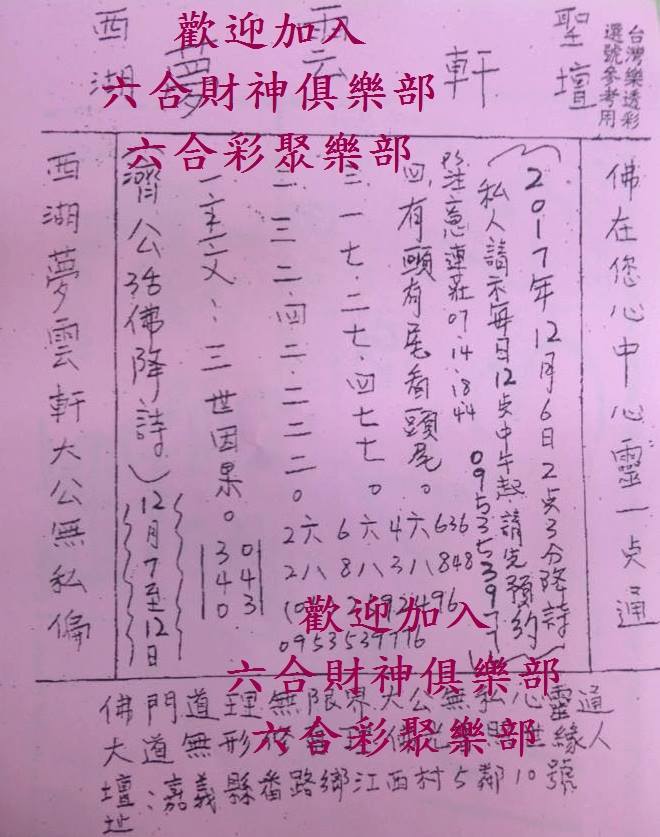 台灣樂透彩
選號參考用
聖壇
軒
雲
夢
西湖
歡迎加入
六合財神俱樂部
六合彩聚樂部
佛在您心中心靈一点通
2017年12月6日2点3分降詩
私人請示每日12点中午起請先預約
註注意連莊07.14.18.44
四.有頭有尾看頭尾。
三.一七.二七.四七七。
二.三二.四二.二二二。
一.主文:三世因果。
043
340
濟公活佛降詩)
12月7至12日
西湖夢雲軒大公無私偏
2六 6六 4六 636
2八 8八 3八 848
0953539776
歡迎加入
六合財神俱樂部
六合彩聚樂部
佛門道理無限界大公無私心靈通
大道無形
緣人
壇址:嘉義縣番路鄉江西村5鄰10號